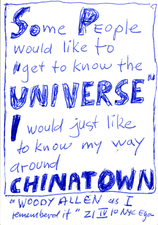 Some People
would like to
"get to know the
UNIVERSE"
I would just like
to know my way
around
CHINATOWN
"WOODY ALLEN as I
remembered it" 21 IV 10 NYC Ego